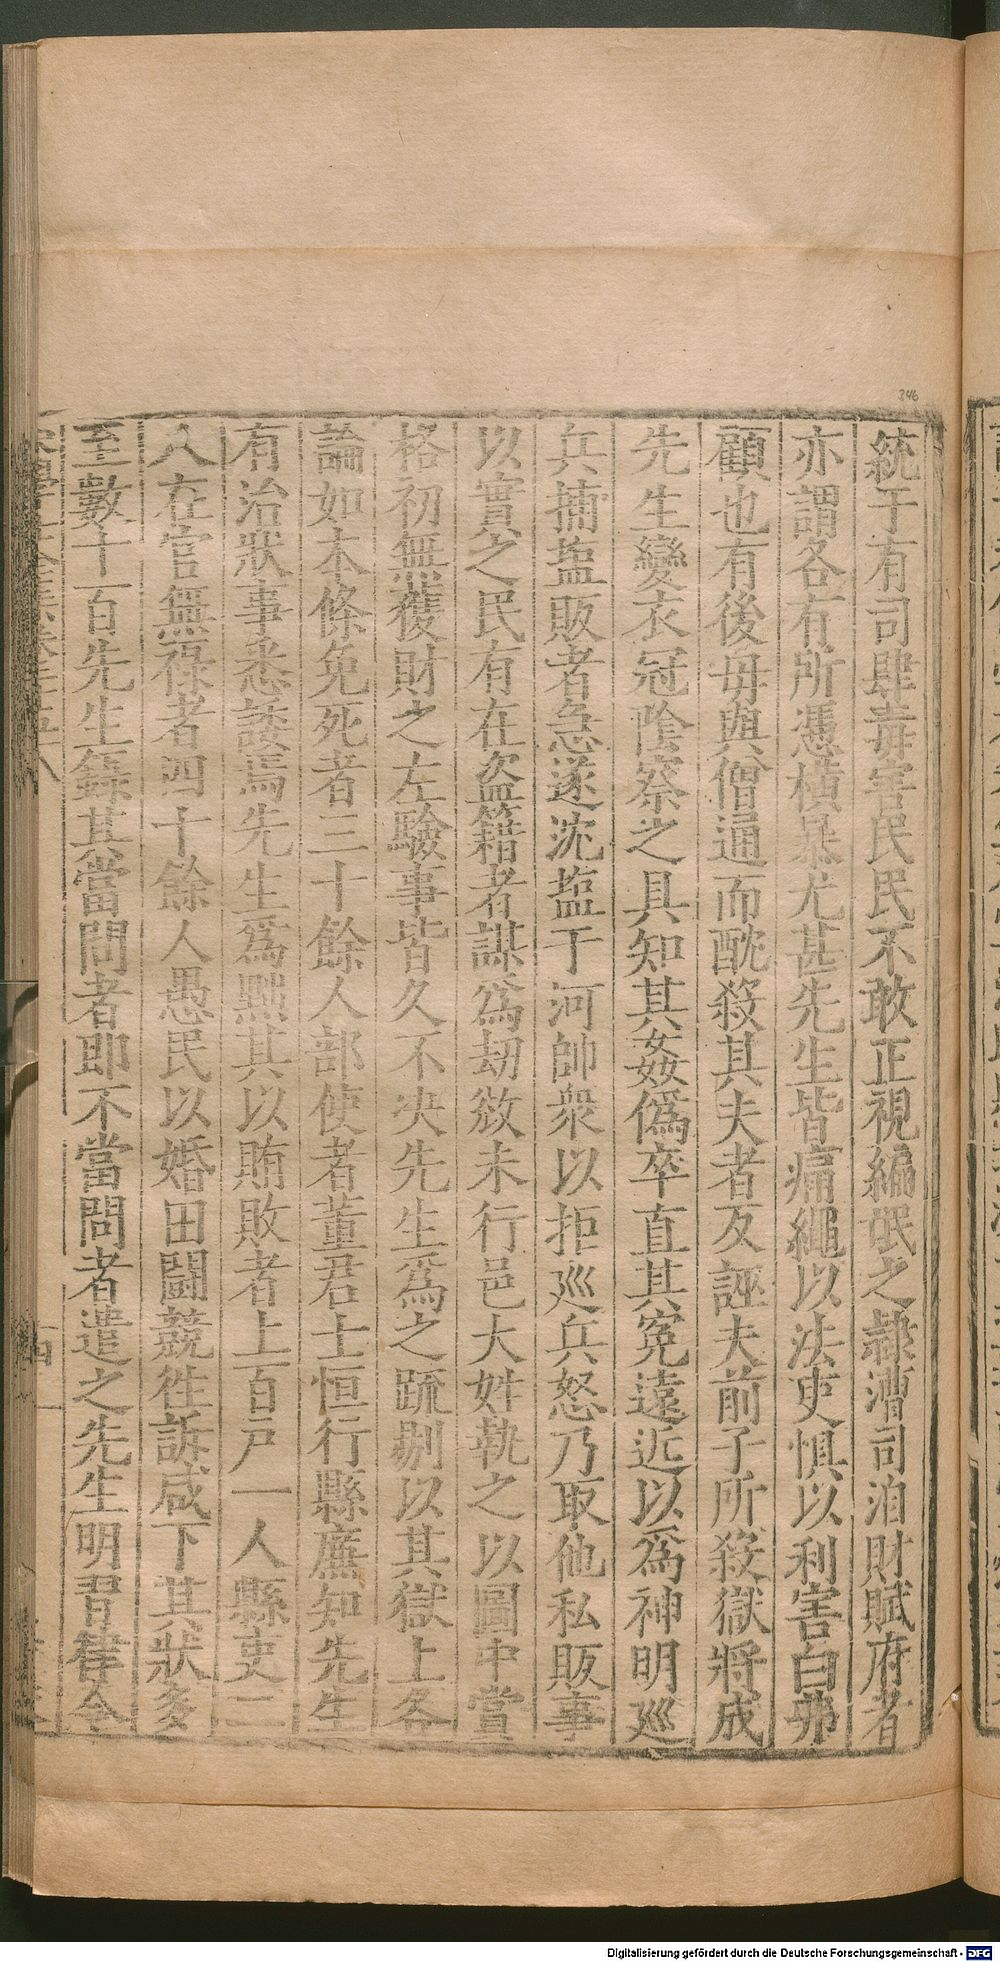 統于有司肆毒害民民不敢正視編氓之隸漕司洎財賦府者
亦謂各有所憑橫暴尤甚先生皆痛繩以法吏惧以利害白弗
顧也有後母與僧通而酖殺其夫者反誣夫前子所殺獄將成
先生變衣冠陰察之具知其姦僞卒直其寃遠近以爲神明廵
兵捕塩販者急遂沈塩于河帥衆以拒廵兵怒乃取他私販事
以實之民有在盗籍者謀爲劫敚未行邑大姓執之以圖中賞
格初無獲財之左驗事皆久不决先生爲之疏剔以其獄上各
論如本條免死者三十餘人部使者董君士恒行縣廉知先生
有治狀事悉諉焉先生爲黜其以賄敗者上百戸一人縣吏二
人在官無祿者四十餘人愚民以婚田闘競徃訴咸下其狀多
至數十百先生錄其當問者即不當問者遣之先生明習律令
346
Digitalisierung gefördert durch die Deutsche Forschungsgemeinschaft - DFG